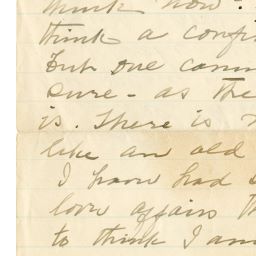 think now
think a conf
But one can
sure - as the
is. There is
like an old
I have had
love affairs th
to think I am